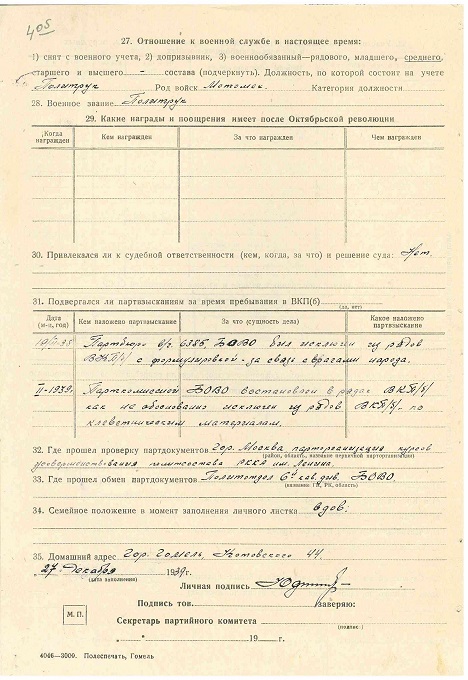 405
27. Отношение к военной службе в настоящее время:
1) снят с военного учета, 2) допризывник, 3) военнообязанный—рядового, младшего, среднего,
старшего и высшего – состава (подчеркнуть). Должность, по которой состоит на учете
Политрук Род войск Мотомех. Категория должности
28. Военное звание Политрук
29. Какие награды и поощрения имеет после Октябрьской революции
Когда награжден
Кем награжден
За что награжден
Чем награжден
30. Привлекался ли к судебной ответственности (кем, когда, за что) и решение суда: Нет.
31. Подвергался ли партвзысканиям за время пребывания в ВКП(б)
(да, нет)
Дата (м-ц, год)
Кем наложено партвзыскание
За что (сущность дела)
Какое наложено партвзыскание
Партбюро в/ч 6385 БОВО был исключен из рядов
ВКП/б/ с формулировкой - за связь с врагами народа.
II-1939г. Парткомиссией БОВО востановлен в рядах ВКП/б/
как не обоснованно исключен из рядов ВКП/б/ - по
клеветническим материалам.
32. Где прошел проверку партдокументов Гор. Москва парторганизация курсов
(район, область, название первичной парторганизации)
усовершенствования политсостава РККА им. Ленина.
33. Где прошел обмен партдокументов Политотдел 6й кав. див. БОВО.
34. Семейное положение в момент заполнения личного листка вдов.
35. Домашний адрес Гор. Гомель, Котовского 44.
27 Декабря 1939г.
(дата заполнения)
Личная подпись
Подпись тов. заверяю:
М.П.
Секретарь партийного комитета
(подпись)
" " 19 г.
4046—3009. Полеспечать, Гомель